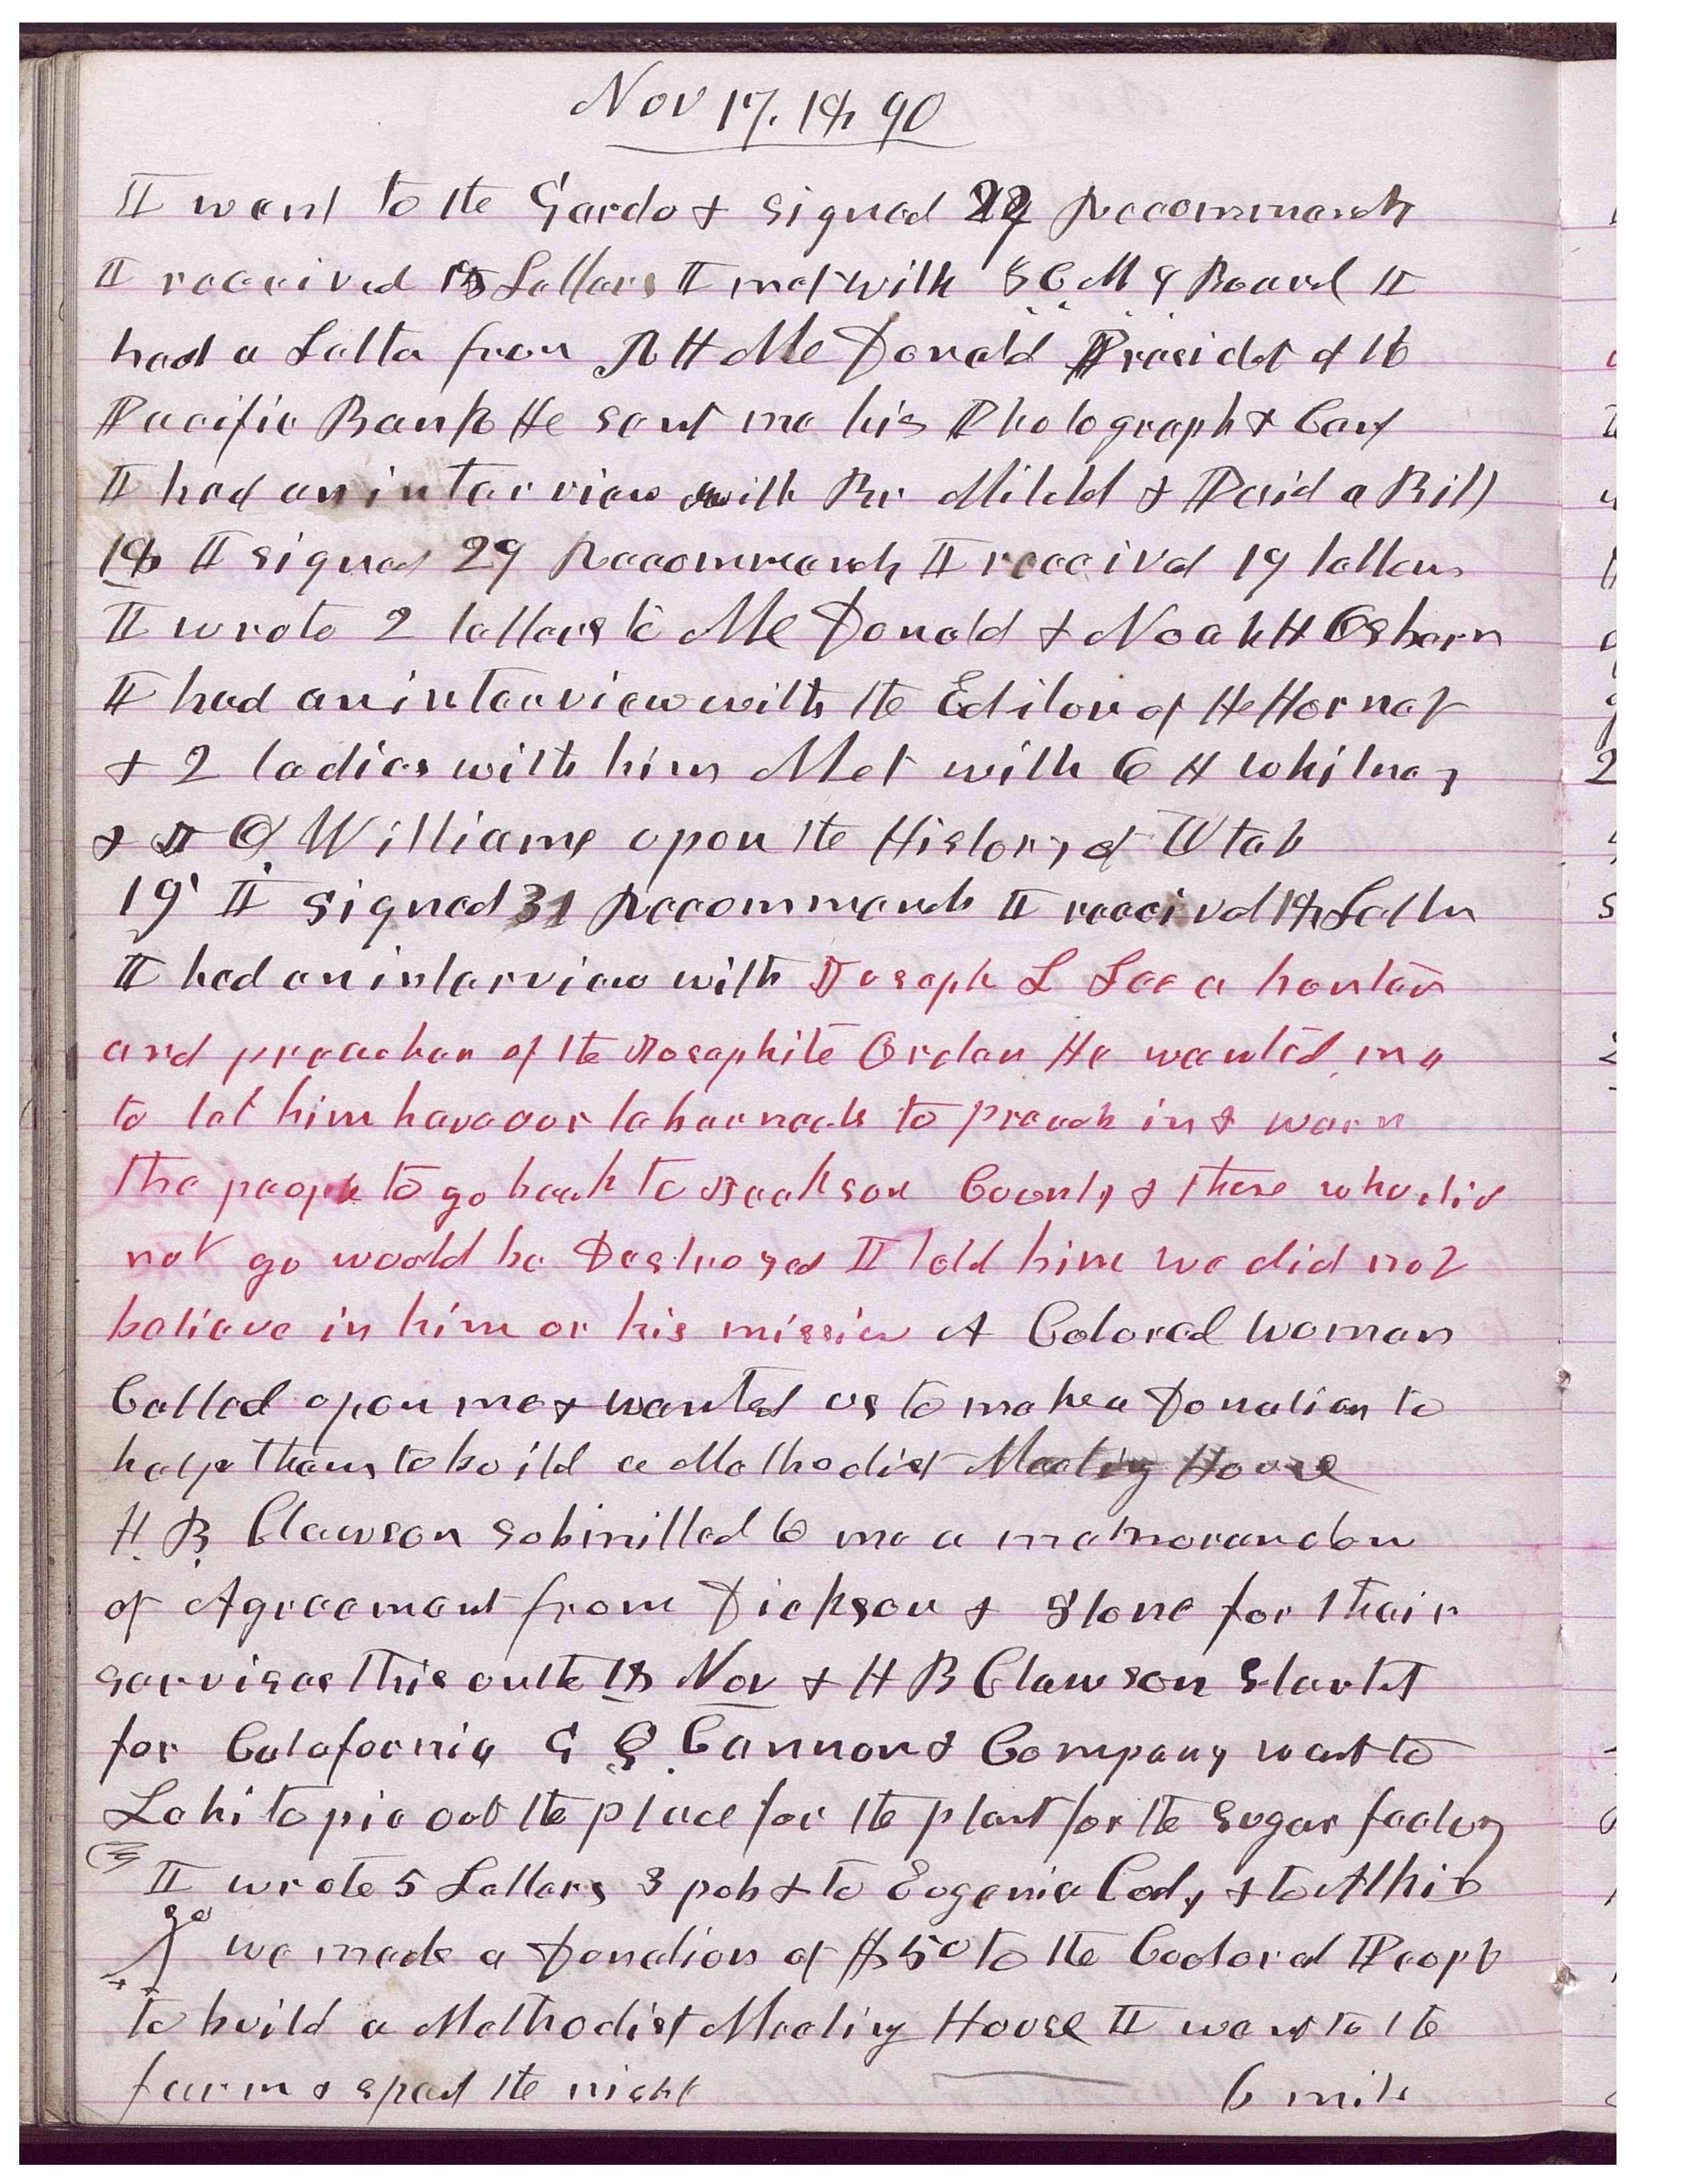 Nov 17, 1890
I went to the Gardo & signed Recommends
I received 15 Letters I met with Z C M I Board I
had a Letter from R H McDonald Presidet of the
Pacific Bank He sent me his Photograph & Card
I had an interview with Br & Paid a Bill
18 I signed 29 Recommends I receivd 19 letters
I wrote 2 letters to McDonald & Noah H Osborn
I had an interview with the Editor of the Hornet
& 2 ladies with him Met with O H Whitney
& Williams upon the History of Utah
19 I signed 31 Recommends I receivd 18 Letters
I had an interview with Joseph L Lee a hunter
and preacher of the Josephite Order He wanted me
to let him have our tabernacle to preach in & warn
the people to go back to Jackson County & those who did
not go would be Destroyed I told him we did not
believe in him or his mission A Colored woman
Called upon me & wanted us to make a Donation to
help them to build a Methodist Meeting House
H. B. Clawson submitted to me a memorandom
of Agreement from Dickson & Stone for their
servises this on the 18 Nov & H B Clawson started
for Calafornia G Q. Cannon & Company went to
Lehi to pic out the place for the plant for the Sugar factory
I wrote 5 Letters 3 pub & to Eugenia Cody & to Alhie
20 we made a Donation of $50 to the Coolored People
to build a Methodist Meeting House I went to the
farm & spent the night 6 mils